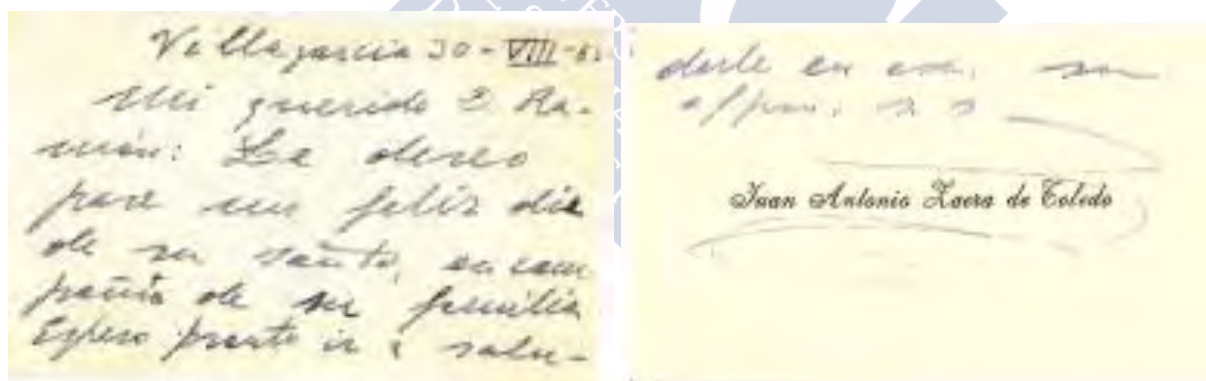 Villagarcia 30-VIII-6
Mi querido D. Ra-
món: Le deseo
pase un feliz dia
de su santo, en com
pañia de su familia
Espero pronto ir a salu-
darle en esa. su
affmo. s s
Juan Antonio Zaera de Toledo